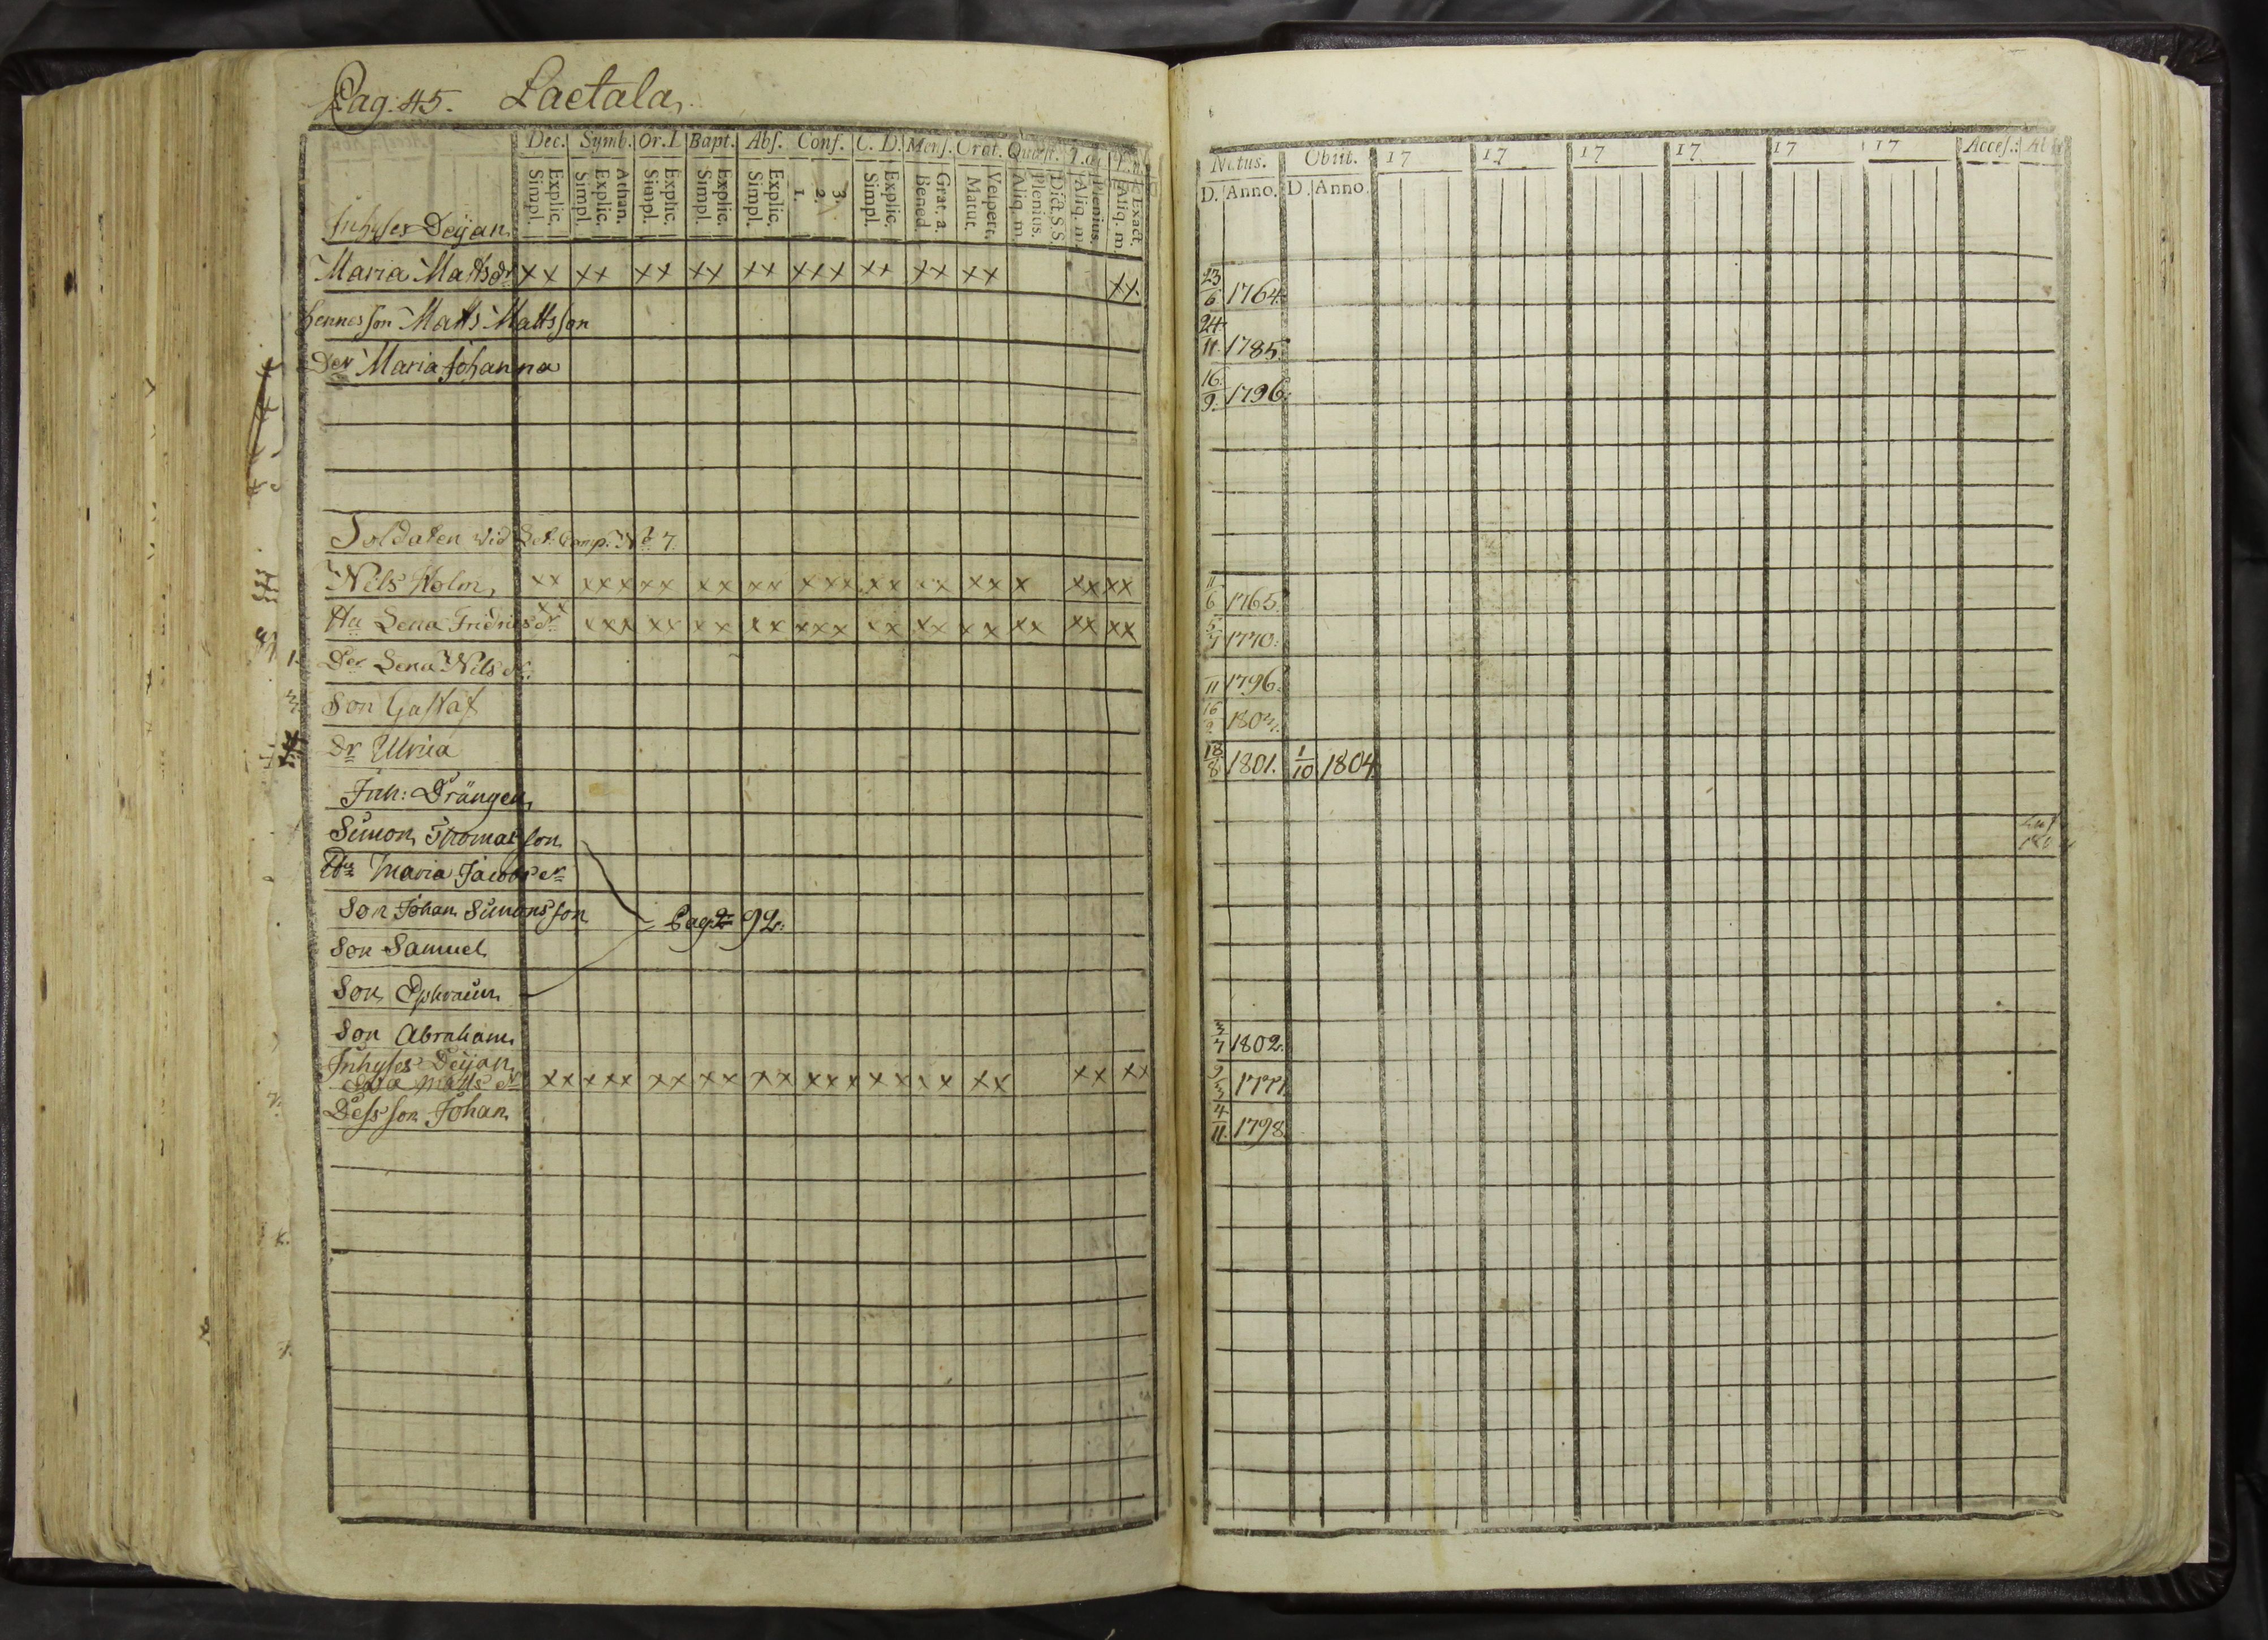 Pag: 45. Laetala
Dec. Symb. Or. L Bapt. Abs. Conf. C. D. Mens. Orat. Quæst.
Explic. Simpl. Athan. Explic. Simpl. Explic. Simpl. Explic. Simpl. Explic. Simpl. 3. 2. 1. Explic. Simpl. Grat. a. Bened. Vespert. Matut. Dict. S.S. Plenius. Aliq. m. Plenius. Aliq. m. Exact. Aliq. m.
Natus. Obiit. 17 17 17 17 17 17 Acces.
D. Anno. D. Anno.
Inhyses Deijan
Maria Matts dr xx xx xx xx xx xxx xx xx xx xx. 23/6 1764.
hennes son Matts Mattsson 24/11. 1785.
Der Maria Johanna 16./9. 1796.
Soldaten wid Comp. No 7.
Nils Holm xx xxx xx xx xx xxx xx xx xx x xx xx 11/6 1765.
Hu Lena Fridrics dr xx xxx xx xx xx xxx xx xx xx xx xx xx 1770.
1. Der Lena Nils dr: 11 1796.
Son Gustaf
Dr Ulrica 18/8 1801. 1/10 1804
Inh: Drängen
Simon Thomasson
Hu Maria Jacobs dr
Son Johan Simonsson
Pag 92.
Son Samuel
Son Ephraim
Son Abraham 3/7 1802.
Inhyses Deijan
Matts dr xx xxx xx xx xx xxx xx xx xx xx xx 9/3 1771.
Dess son Johan 4/11. 1798.